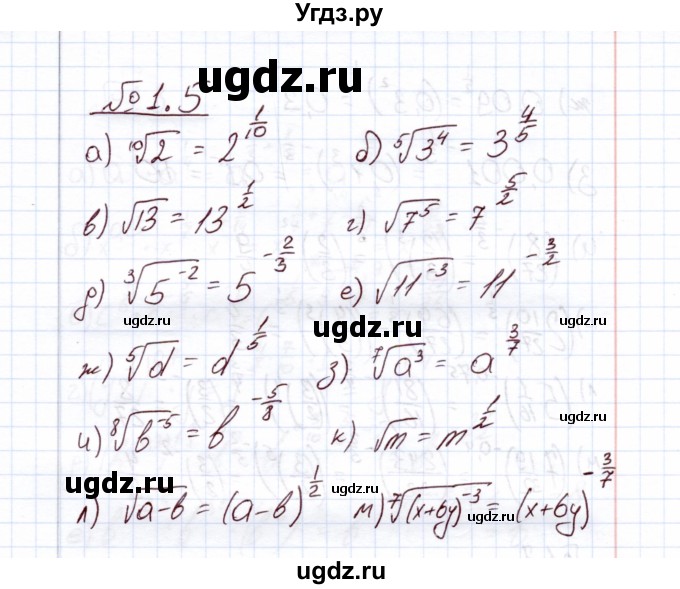 Угдз.ру
ugdz.ru
№ 1.5
а) ¹⁰√2 = 2^(1/10) б) ⁵√(3⁴) = 3^(4/5)
в) √13 = 13^(1/2) г) √(7⁵) = 7^(5/2)
д) ³√(5⁻²) = 5^(-2/3) е) √(11⁻³) = 11^(-3/2)
ugdz.ru ugdz.ru ugdz.ru
ж) ⁵√d = d^(1/5) з) ⁷√(a³) = a^(3/7)
и) ⁸√(b⁻⁵) = b^(-5/8) к) √m = m^(1/2)
ugdz.ru
ugdz.ru ugdz.ru ugdz.ru
л) √(a-b) = (a-b)^(1/2) м) ⁷√((x+6y)⁻³) = (x+6y)^(-3/7)
ugdz.ru